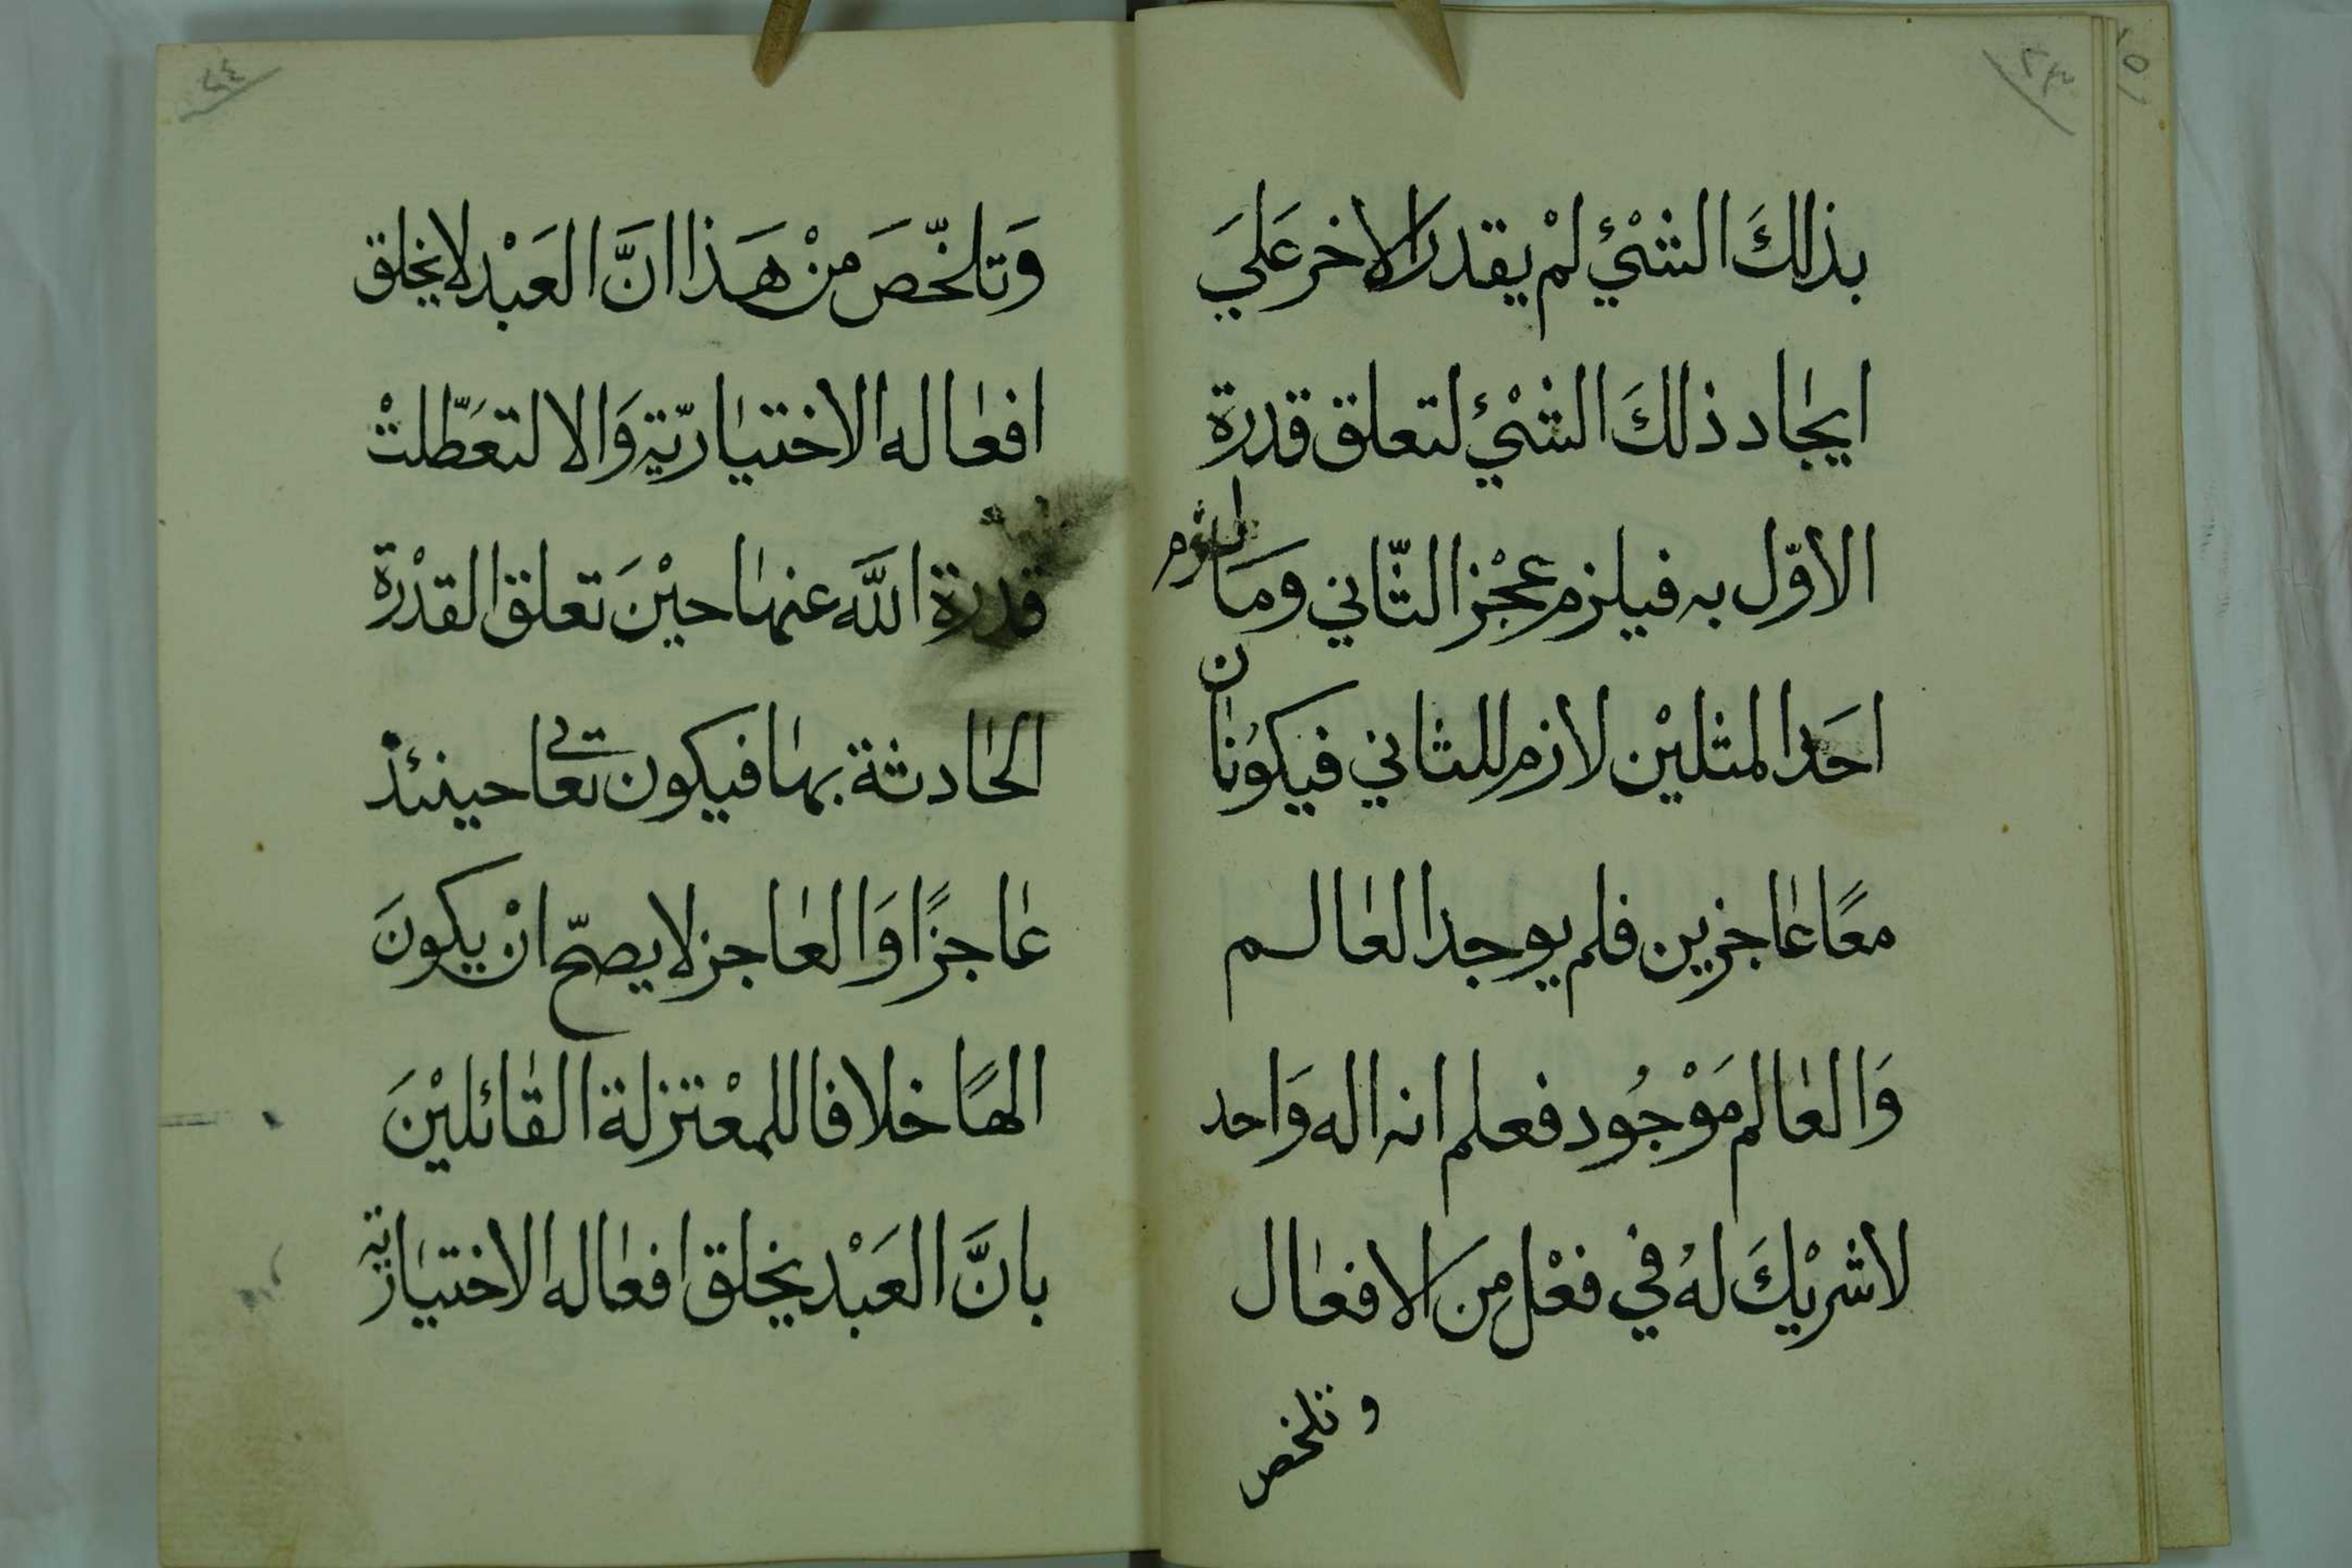 ٢٣
بذلكَ الشىْئ لمْ يقدر الاخر عَليَ
ايجاد ذلكَ الشىْئ لتعلق قدرة
الاوّل به فيلزم عجْز الثّاني ومَا
احَد المثليْن لازم للثاني فيكوُنان
معًا عاجزين فلم يوجد العالم
وَالعالم مَوْجُود فعلم انه اله وَاحد
لاشريْكَ لهُ في فعْل مِنَ الافعال
وتلخص
٢٤
وَتلخّصَ منْ هَذا انَّ العَبْد لايخلق
افعاله الاختياريّة وَالا لتعَطّلتْ
قدرة اللَّه عنها حيْنَ تعلق القدْرة
الحادثة بها فيكون تعالى حينئذ
عاجزًا وَالعاجز لايصحّ انْ يكونَ
الهًا خلافا للمعْتزلة القائليْنَ
بانَّ العَبْد يخلق افعاله الاختيارية